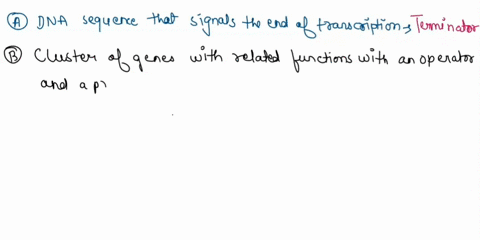 Ⓐ DNA sequence that signals the end of transcription → Terminator
Ⓑ Cluster of genes with related functions with an operator
and a p